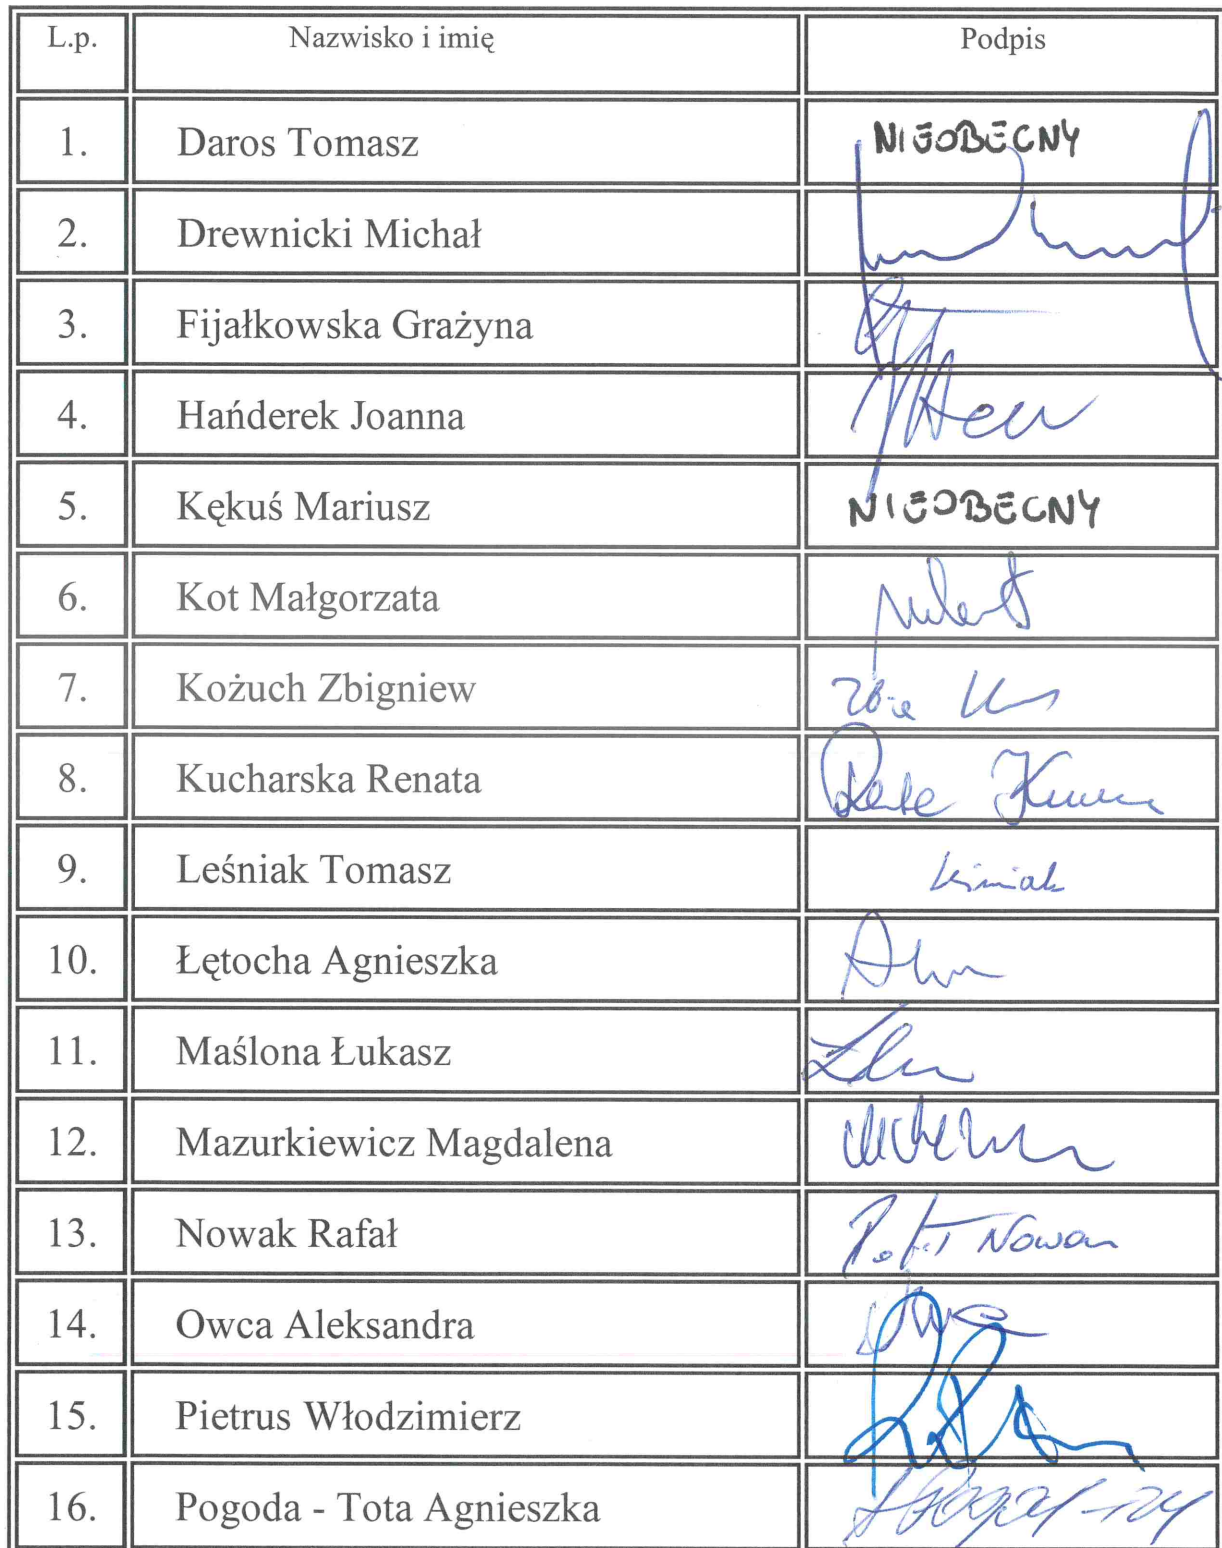 L.p. Nazwisko i imię Podpis
1. Daros Tomasz NIEOBECNY
2. Drewnicki Michał
3. Fijałkowska Grażyna
4. Hańderek Joanna
5. Kękuś Mariusz NIEOBECNY
6. Kot Małgorzata
7. Kożuch Zbigniew
8. Kucharska Renata
9. Leśniak Tomasz
10. Łętocha Agnieszka
11. Maślona Łukasz
12. Mazurkiewicz Magdalena
13. Nowak Rafał
14. Owca Aleksandra
15. Pietrus Włodzimierz
16. Pogoda - Tota Agnieszka